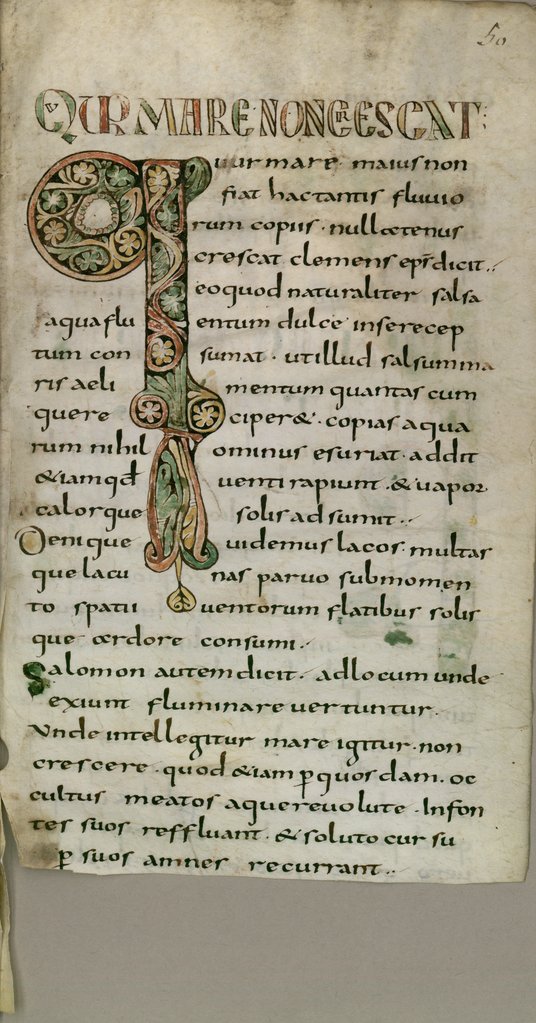 50
QUR MARE NON CRESCAT:
Quur mare maius non
fiat hac tantis fluvio
rum copiis · nullatenus
crescat clemens epr̄ dicit ..
eo quod naturaliter salsa
aqua flu entum dulce inse recep
tum con sumat · ut illud sal summa
ris aeli mentum quantas cum
quere ciper& · copias aqua
rum nihil ominus esuriat · addit
&iam qđ venti rapiunt · & vapor
calor que solis adsumit ..
Deni que videmus lacos · multas
que lacu nas parvo sub momen
to spatii ventorum flatibus solis
que ardore consumi ..
Salomon autem dicit · ad locum unde
exiunt flumina revertuntur ·
Unde intellegitur mare igitur · non
crescere · quod &iam p quosdam · oc
cultus meatos aque revolute · In fon
tes suos reffluant · & soluto cur su
p suos amnes recurrant ..